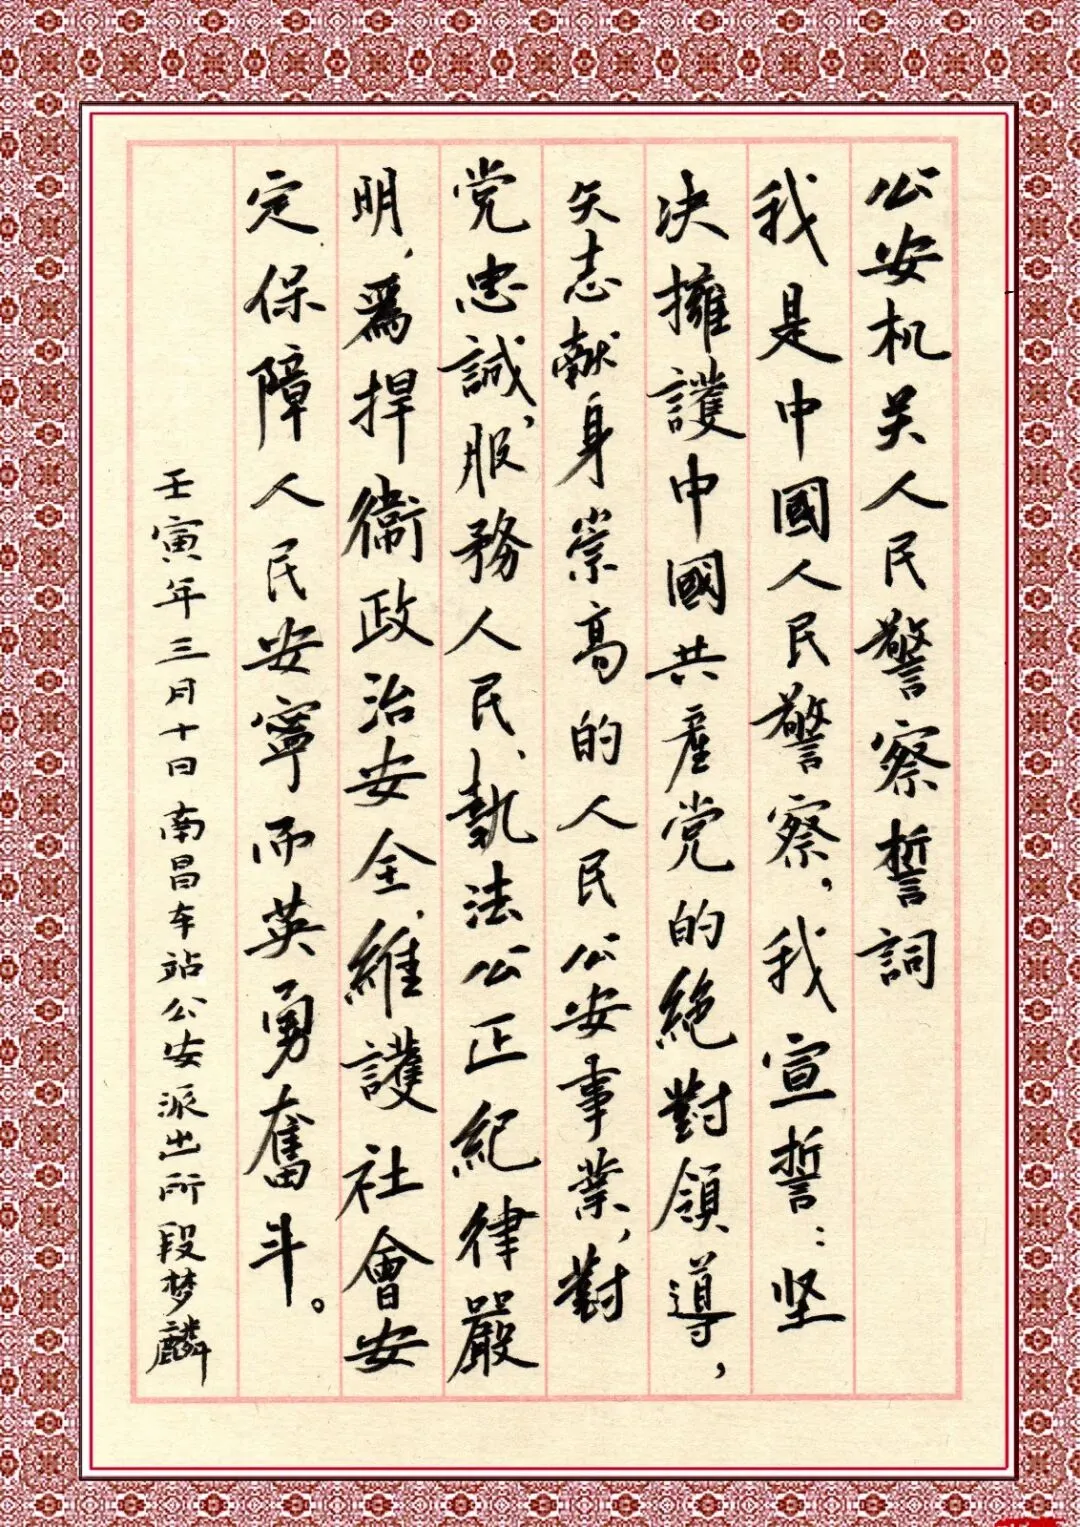 公安机关人民警察誓詞
我是中國人民警察，我宣誓：坚
决擁護中國共産党的絶對領導，
矢志献身崇高的人民公安事業，對
党忠誠，服務人民、執法公正紀律嚴
明，爲捍衛政治安全，維護社會安
定、保障人民安寧而英勇奮斗。
壬寅年三月十日南昌车站公安派出所段梦麟